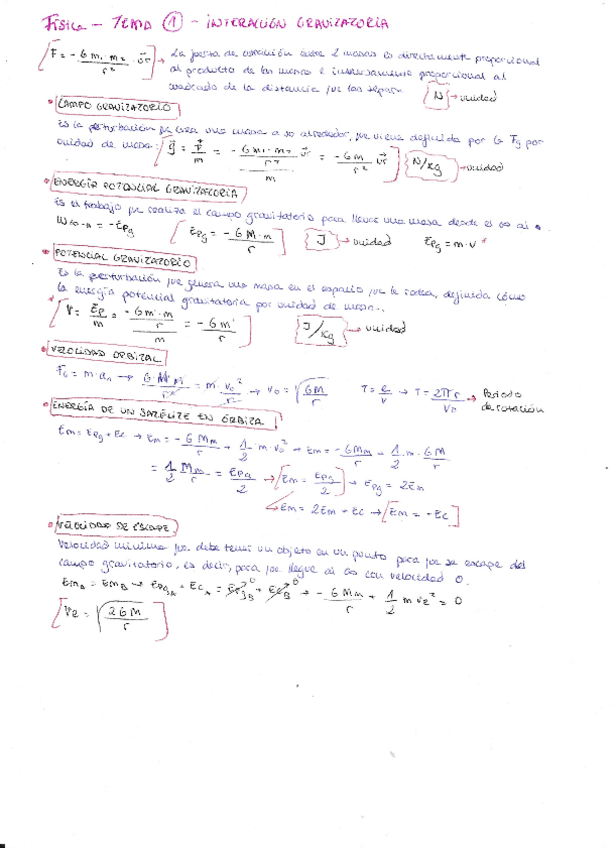 Física - TEMA ① - INTERACIÓN GRAVITATORIA
F = - G m₁ m₂ / r² · u⃗r → La fuerza de atracción entre 2 masas es directamente proporcional
al producto de las masas e inversamente proporcional al
cuadrado de la distancia que las separa. N → unidad
• CAMPO GRAVITATORIO
Es la perturbación que crea una masa a su alrededor, que viene definida por la Fg por
unidad de masa: g⃗ = F⃗ / m = (- G m₁ · m₂ / r² u⃗r) / m = - G m / r² u⃗r N/kg → unidad
• ENERGÍA POTENCIAL GRAVITATORIA
Es el trabajo que realiza el campo gravitatorio para llevar una masa desde el ∞ al
W∞→n = - Epg Epg = - G M · m / r J → unidad Epg = m · V
• POTENCIAL GRAVITATORIO
Es la perturbación que genera una masa en el espacio que la rodea, definida cómo
la energía potencial gravitatoria por unidad de masa.
V = Ep / m = (- G m · m / r) / m = - G m / r J/kg → unidad
• VELOCIDAD ORBITAL
FG = m · an → G M m / r² = m · v₀² / r → v₀ = √(G M / r) T = e / v → T = 2πr / v₀ → Periodo
de rotación
• ENERGÍA DE UN SATÉLITE EN ÓRBITA
Em = Epg + Ec → Em = - G M m / r + 1/2 · m · v₀² → Em = - G M m / r + 1/2 · m · G M / r
= 1/2 M m / r = Epg / 2 → Em = Epg / 2 → Epg = 2Em
↳ Em = 2Em + Ec → Em = - Ec
• VELOCIDAD DE ESCAPE
Velocidad mínima que debe tener un objeto en un punto para que se escape del
campo gravitatorio, es decir, para que llegue al ∞ con velocidad 0.
EmA = EmB → EpgA + EcA = EpgB⁰ + EcB⁰ → - G M m / r + 1/2 m ve² = 0
ve = √(2 G M / r)